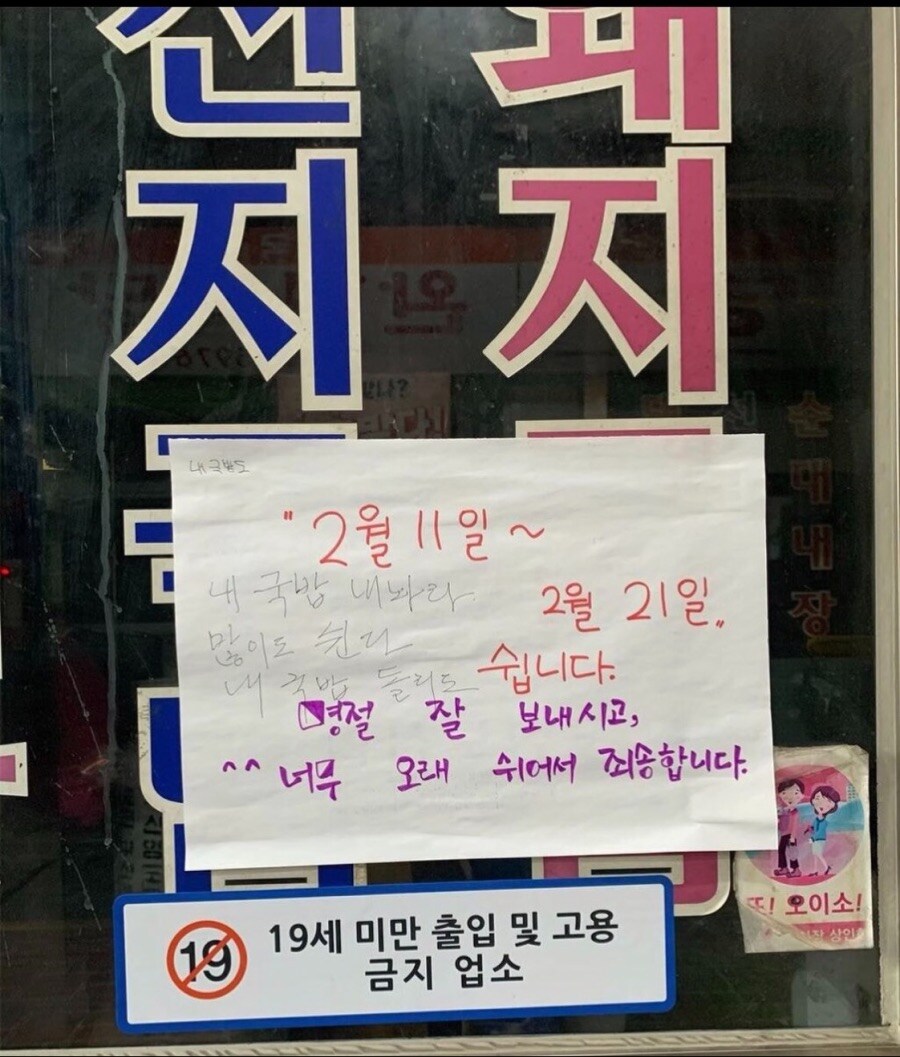 선 돼
지 지
내 국밥도
" 2월 11일 ~
내 국밥 내놔라
2월 21일 "
많이도 쉰다
쉽니다.
내 국밥 돌리도
명절 잘 보내시고,
^^ 너무 오래 쉬어서 죄송합니다.
순대내장
또! 오이소!
19 19세 미만 출입 및 고용
금지 업소